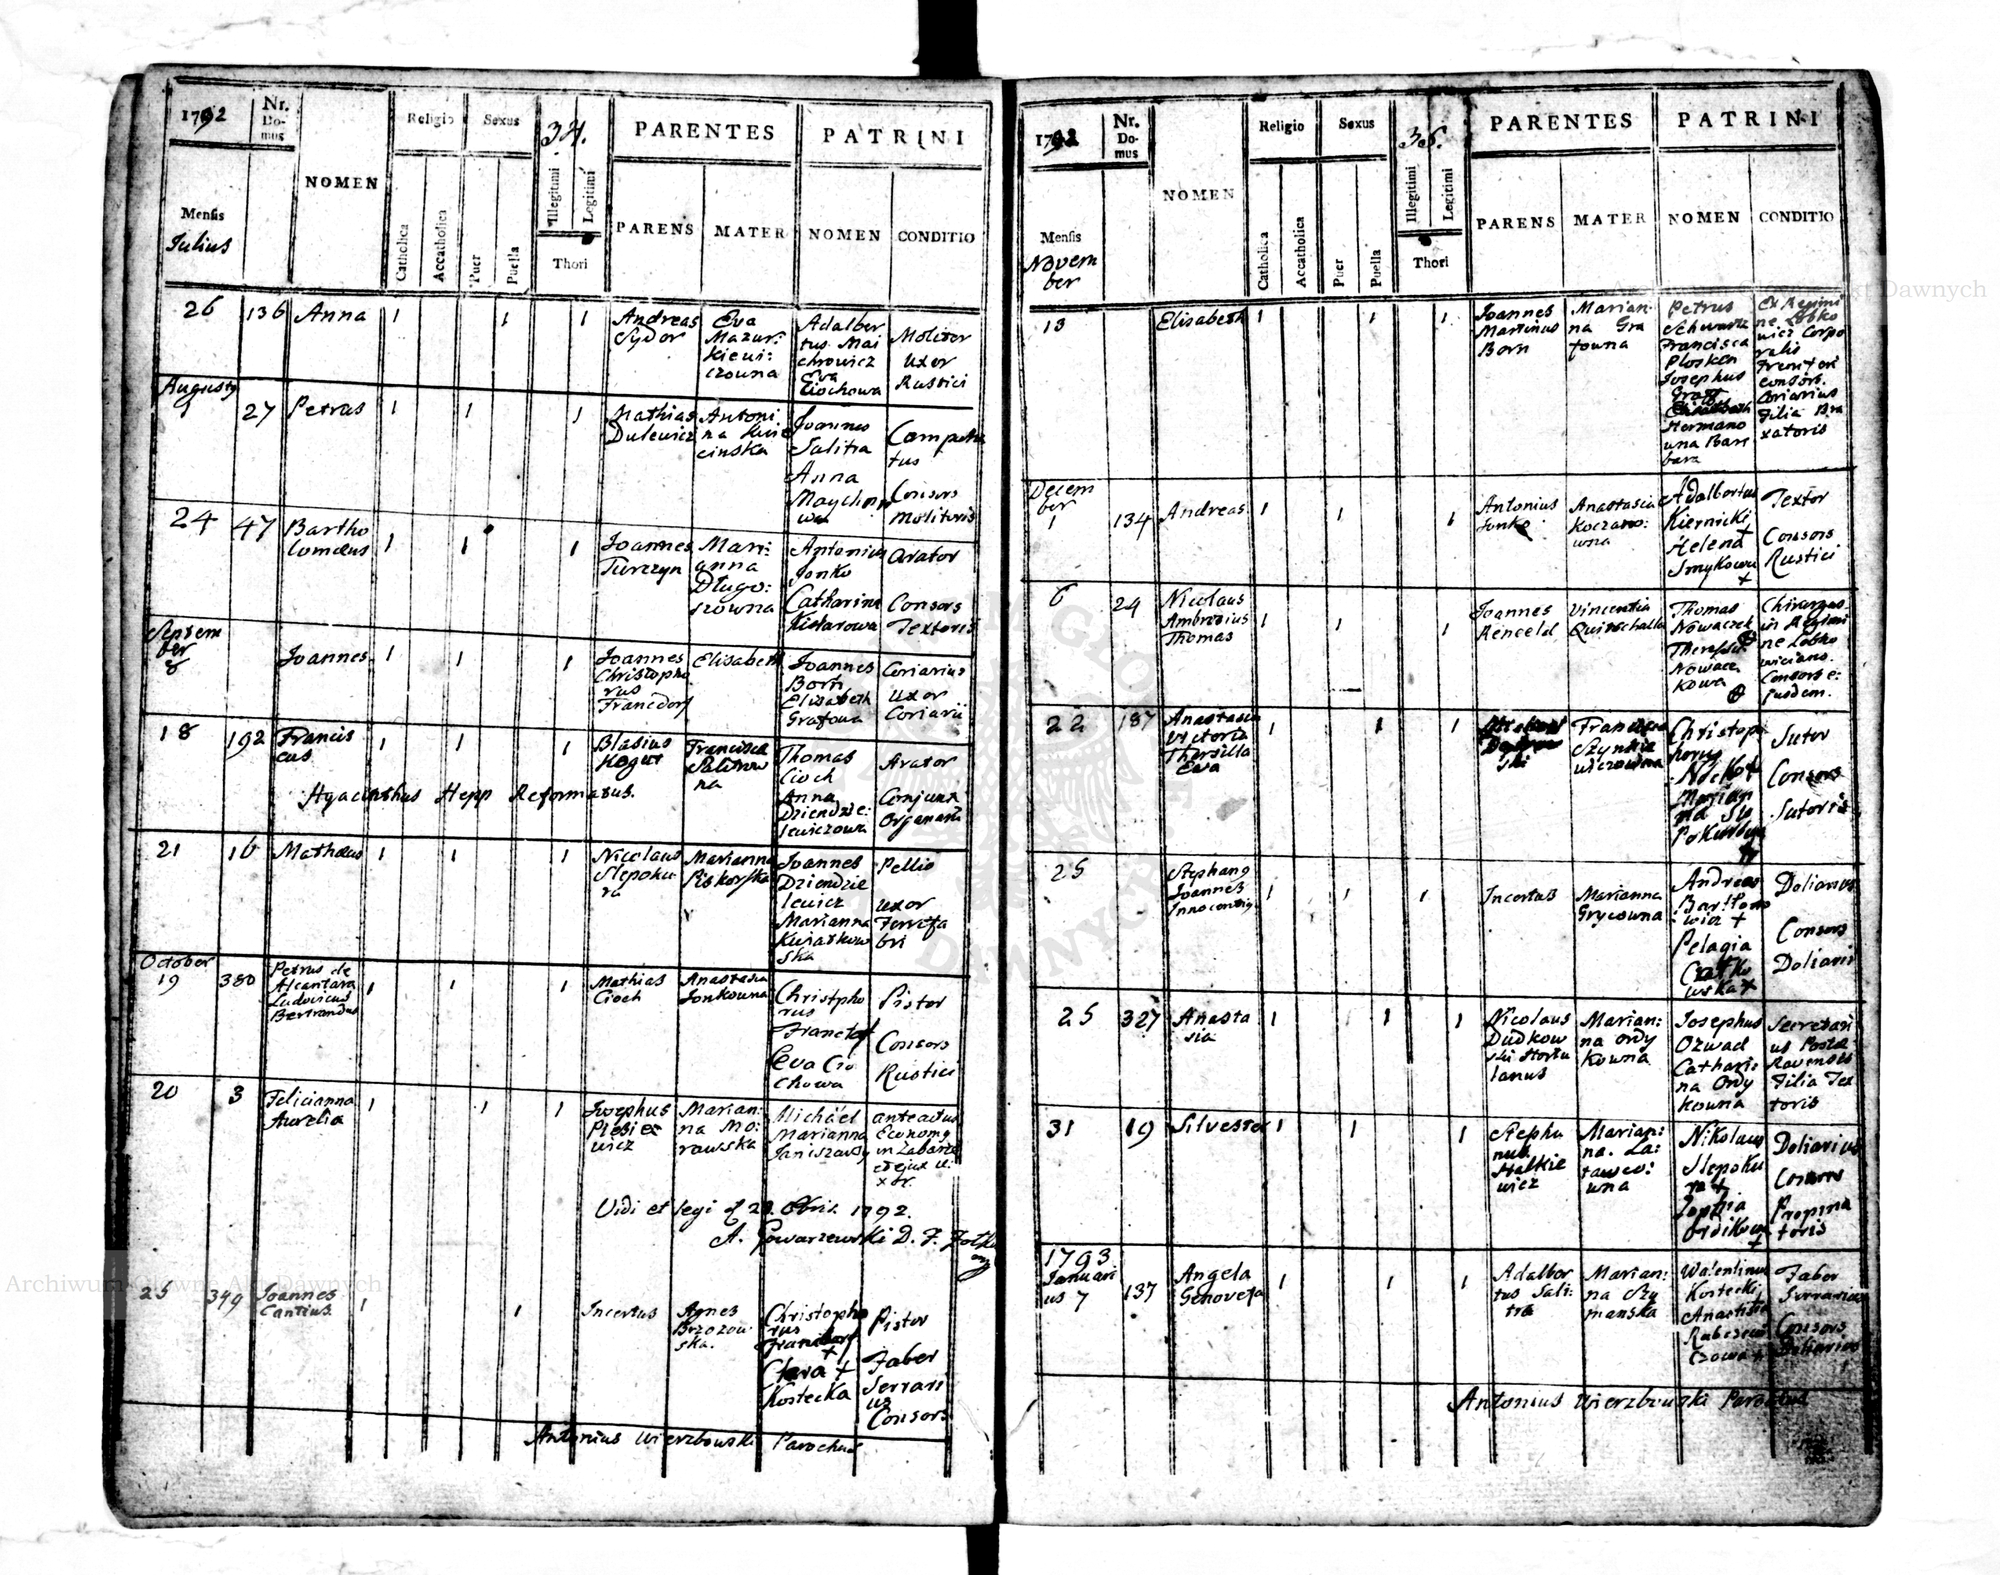 1792
Nr. Domus
NOMEN
Religio
Sexus
34.
PARENTES
PATRINI
Mensis
Julius
Catholica
Accatholica
Puer
Puella
Illegitimi
Legitimi
Thori
PARENS
MATER
NOMEN
CONDITIO
26 136 Anna 1 1 1
Andreas
Sydor
Eva
Mazur:
kiewi:
czowna
Adalber
tus Mai
chrowicz
Eva
Ciochowa
Molitor
Uxor
Rustici
Augusty
1 27 Petrus 1 1 1
Mathias
Dulewicz
Antoni
na Kwie
cinska
Joannes
Salitra
Anna
Maychro
wa
Consors
Molitoris
24 47 Bartho
lomæus 1 1 1
Joannes
Turczyn
Mari:
anna
Długo:
szowna
Antonius
Jonko
Catharina
Kistarowa
Arator
Consors
Textoris
Septem
ber
8 Joannes 1 1 1
Joannes
Christopho
rus
Francdorf
Elisabeth
Joannes
Born
Elisabeth
Grafowa
Coriarius
Uxor
Coriarii
18 192 Francis
cus 1 1 1
Blasius
Kogut
Francisca
Salitrow
na
Thomas
Cioch
Anna
Dziendzie:
lewiczowa
Arator
Conjunx
Organarii
Hyacinthus Hepp Reformatus.
21 16 Mathæus 1 1 1
Nicolaus
Slepoku
ra
Marianna
Piskorska
Joannes
Dziendzie
lewicz
Marianna
Kwiatkow
ska
Pellio
Uxor
Ferrifa
bri
October
19 380 Petrus de
Alcantara
Ludovicus
Bertrandus 1 1 1
Mathias
Cioch
Anastasia
Jonkowna
Christpho
rus
Francdorf
Eva Cio
chowa
Pistor
Consors
Rustici
20 3 Felicianna
Aurelia 1 1 1
Josephus
Marian:
na Mo:
rawska
Michael
Marianna
anteactus
Economg
Vidi et legi 1792.
25 349 Joannes
Cantius. 1 1
Incertus
Agnes
Brzozow
ska.
Christopho
rus
Francdorf
+
Clara +
Kostecka
Pistor
Faber
Serrari
us
Consors
Antonius Wierzbowski Parochus
1792
Nr. Domus
NOMEN
Religio
Sexus
35.
PARENTES
PATRINI
Mensis
Novem
ber
Catholica
Accatholica
Puer
Puella
Illegitimi
Legitimi
Thori
PARENS
MATER
NOMEN
CONDITIO
13 Elisabeth 1 1 1
Joannes
Martinus
Born
Marian
na Gra
fowna
Petrus
Schwartz
Francisca
Plosken
Josephus
Graff
Hermano
wna Bar
bara
Ex Regimi
ne Lobko
wicz Corpo
ralis
consors.
Coriarius
Filia Bra
xatoris
Decem
ber
1 134 Andreas 1 1 1
Antonius
Jonko
Anastasia
Koczano:
wna
Adalbertus
Kiernicki
+
Helena
Smykowa
+
Textor
Consors
Rustici
6 24 Nicolaus
Ambrosius
Thomas 1 1 1
Joannes
Vincentia
Thomas
Nowaczek
Nowacz
kowa
Chirurgus
in Regimi
ne Lobko
wiciano.
Consors e:
jusdem.
22 187 Anastasia
Victoria
Eva 1 1 1
Francisca
Christop
horus
Sutor
Consors
Sutoris
25 Stephang
Joannes 1 1 1
Incertus
Marianna
Grycowna
Andreas
wicz +
Pelagia
wska +
Doliarius
Consors
Doliarii
25 327 Anasta
sia 1 1 1
Nicolaus
Dudkow
ski Hortu
lanus
Marian:
na Ordy
kowna
Josephus
Ozwad
Cathari:
na Ordy
kowna
Secretari
us Postæ
Ravensis
Filia Tex
toris
31 19 Silvester 1 1 1
Stepha
nus
Halkie
wicz
Marian:
na La:
tawco:
wna
Nikolaus
Slepoku
ra +
Zophia
Ordikowa
+
Doliarius
Consors
Propina
toris
1793
Januari
us 7 137 Angela
Genovefa 1 1 1
Adalber
tus Sali:
tra
Marian:
na Szy
manska
Walentinus
Kostecki
Anastasia
Faber
Serrarius
Consors
Doliarii
Antonius Wierzbowski Parochus
Archiwum Główne Akt Dawnych